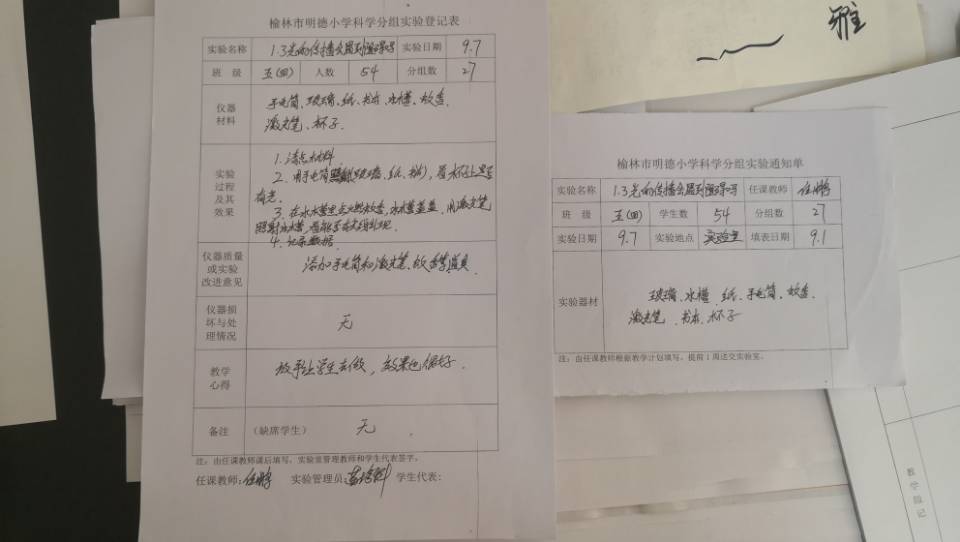 榆林市明德小学科学分组实验登记表
实验名称 1.3光的传播会遇到阻碍吗 实验日期 9.7
班 级 五(四) 人数 54 分组数 27
仪器材料 手电筒、玻璃、纸、书本、水槽、蚊香、
激光笔、杯子.
实验过程及其效果 1. 清点材料
2. 用手电筒照射玻璃、纸、书本),看
有光.
3. 在水槽里点燃蚊香,水槽盖盖.用激光笔
照射水槽,
4. 记录数据.
仪器质量或实验改进意见 添加手电筒和激光笔、蚊香等道具.
仪器损坏与处理情况 无
教学心得 放手让学生去做,效果也很好.
备注 (缺席学生) 无
注:由任课教师课后填写,实验室管理教师和学生代表签字。
任课教师: 实验管理员: 学生代表:
雅
榆林市明德小学科学分组实验通知单
实验名称 1.3光的传播会遇到阻碍吗 任课教师
班 级 五(四) 学生数 54 分组数 27
实验日期 9.7 实验地点 实验室 填表日期 9.1
实验器材 玻璃、水槽、纸、手电筒、蚊香、
激光笔、书本、杯子
注:由任课教师根据教学计划填写,提前1周送交实验室。
教学后记